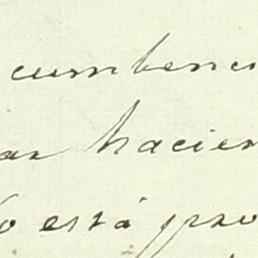 cumbenci
ar hacien
o está pro